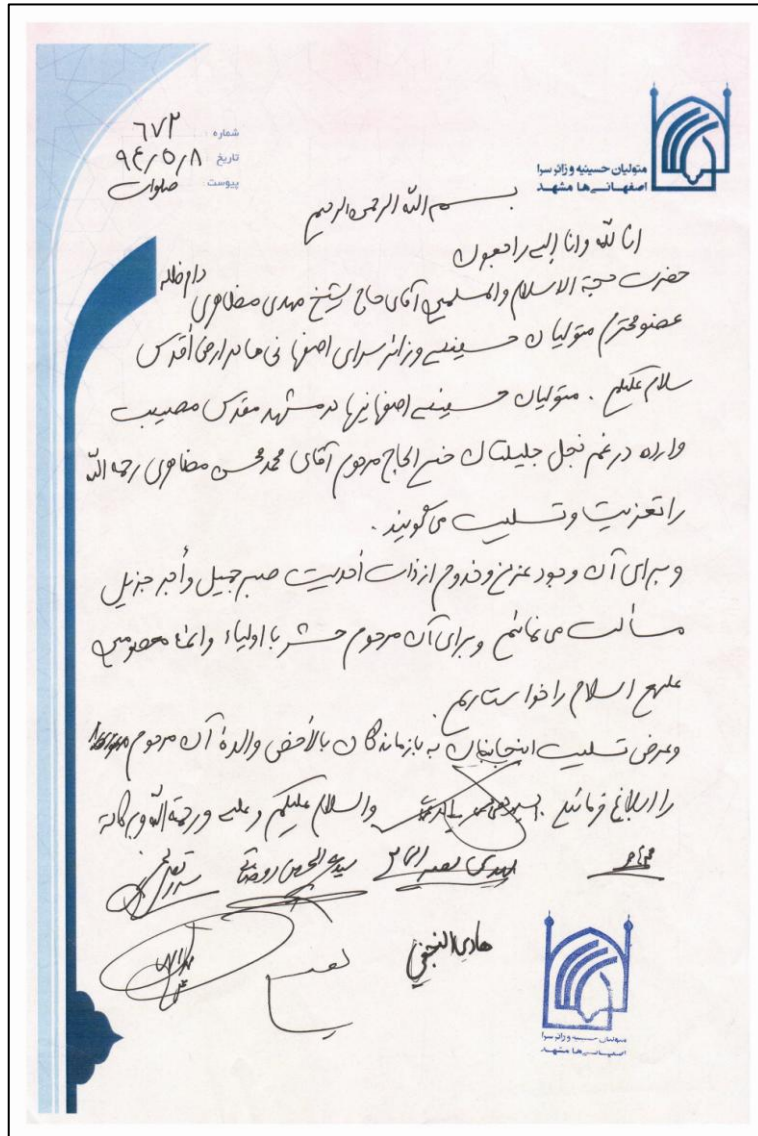 شماره : ۶۷۲
تاریخ : ۹۴/۵/۸
پیوست : صلوات
متولیان حسینیه و زائر سرا
اصفهانی‌ها مشهد
بسم الله الرحمن الرحیم
انا لله وانا الیه راجعون
حضرت حجة الاسلام والمسلمین آقای حاج شیخ مهدی مظاهری دام ظله
عضو محترم متولیان حسینیه و زائر سرای اصفهانی ها در ارض أقدس
سلام علیکم . متولیان حسینیه اصفهانیها در مشهد مقدس مصیبت
وارده در غم نجل جلیلتان الحاج مرحوم آقای محمد محسن مظاهری رحمه الله
را تعزیت و تسلیت می گویند .
و برای آن وجود عزیز و خدوم از ذات أحدیت صبر جمیل و أجر جزیل
مسألت می نمائیم و برای آن مرحوم حشر با اولیاء و ائمه معصومین
علیهم السلام را خواستاریم .
و عرض تسلیت اینجانبان به بازماندگان بالأخص والدۀ آن مرحوم
را ابلاغ فرمائید . والسلام علیکم و علیه و رحمة الله و برکاته
هادی النجفی
متولیان حسینیه و زائر سرا
اصفهانی‌ها مشهد